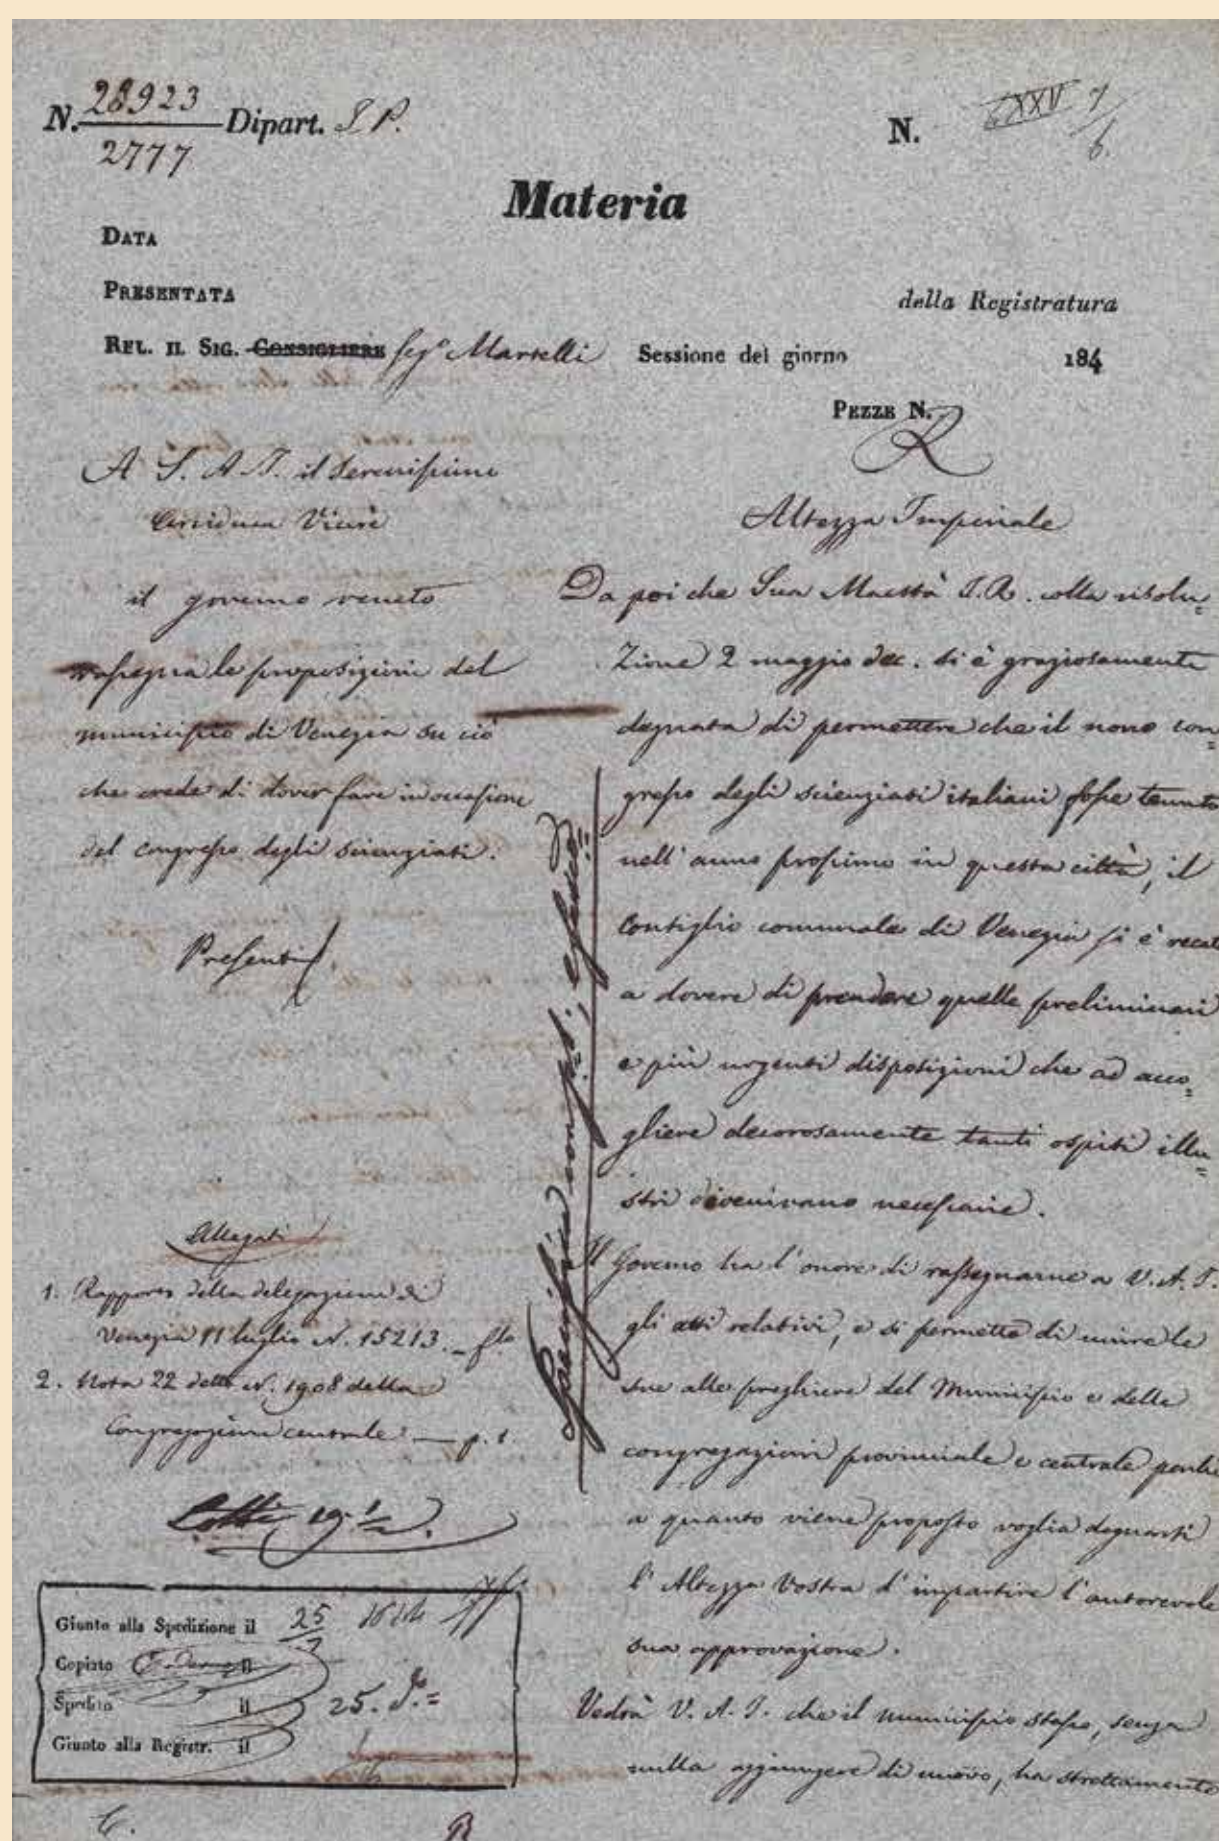 N. 28923 Dipart. I P.
2777
N. XXV 7/6.
Materia
DATA
PRESENTATA
della Registratura
REL. IL SIG. CONSIGLIERE Seg.º Martelli
Sessione del giorno 184
PEZZE N.
A S. A. I. il Serenissimo
Arciduca Vicerè
il governo veneto
rassegna le proposizioni del
municipio di Venezia su ciò
che crede di dover fare in occasione
del congresso degli scienziati.
Presenti
Allegati
1. Rapporto della delegazione di
Venezia 11 luglio N. 15213.
2. Nota 22 detto N. 1908 della
Congregazione centrale — p. 1
Giunto alla Spedizione il 25
Copiato il
Spedito il 25. d.º
Giunto alla Registr. il
Altezza Imperiale
Da poi che Sua Maestà I. R. colla risolu=
zione 2 maggio dec. si è graziosamente
degnata di permettere che il nono con=
gresso degli scienziati italiani fosse tenuto
nell' anno prossimo in questa città, il
Consiglio comunale di Venezia si è recato
a dovere di prendere quelle preliminari
e più urgenti disposizioni che ad acco=
gliere decorosamente tanti ospiti illu=
stri divenivano necessarie.
Il Governo ha l' onore di rassegnarne a V. A. I.
gli atti relativi, e si permette di unire le
sue alle preghiere del Municipio e delle
congregazioni provinciale e centrale perchè
a quanto viene proposto voglia degnarsi
l' Altezza Vostra d' impartire l' autorevole
sua approvazione.
Vedrà V. A. I. che il municipio stesso, senza
nulla aggiungere di nuovo, ha strettamente